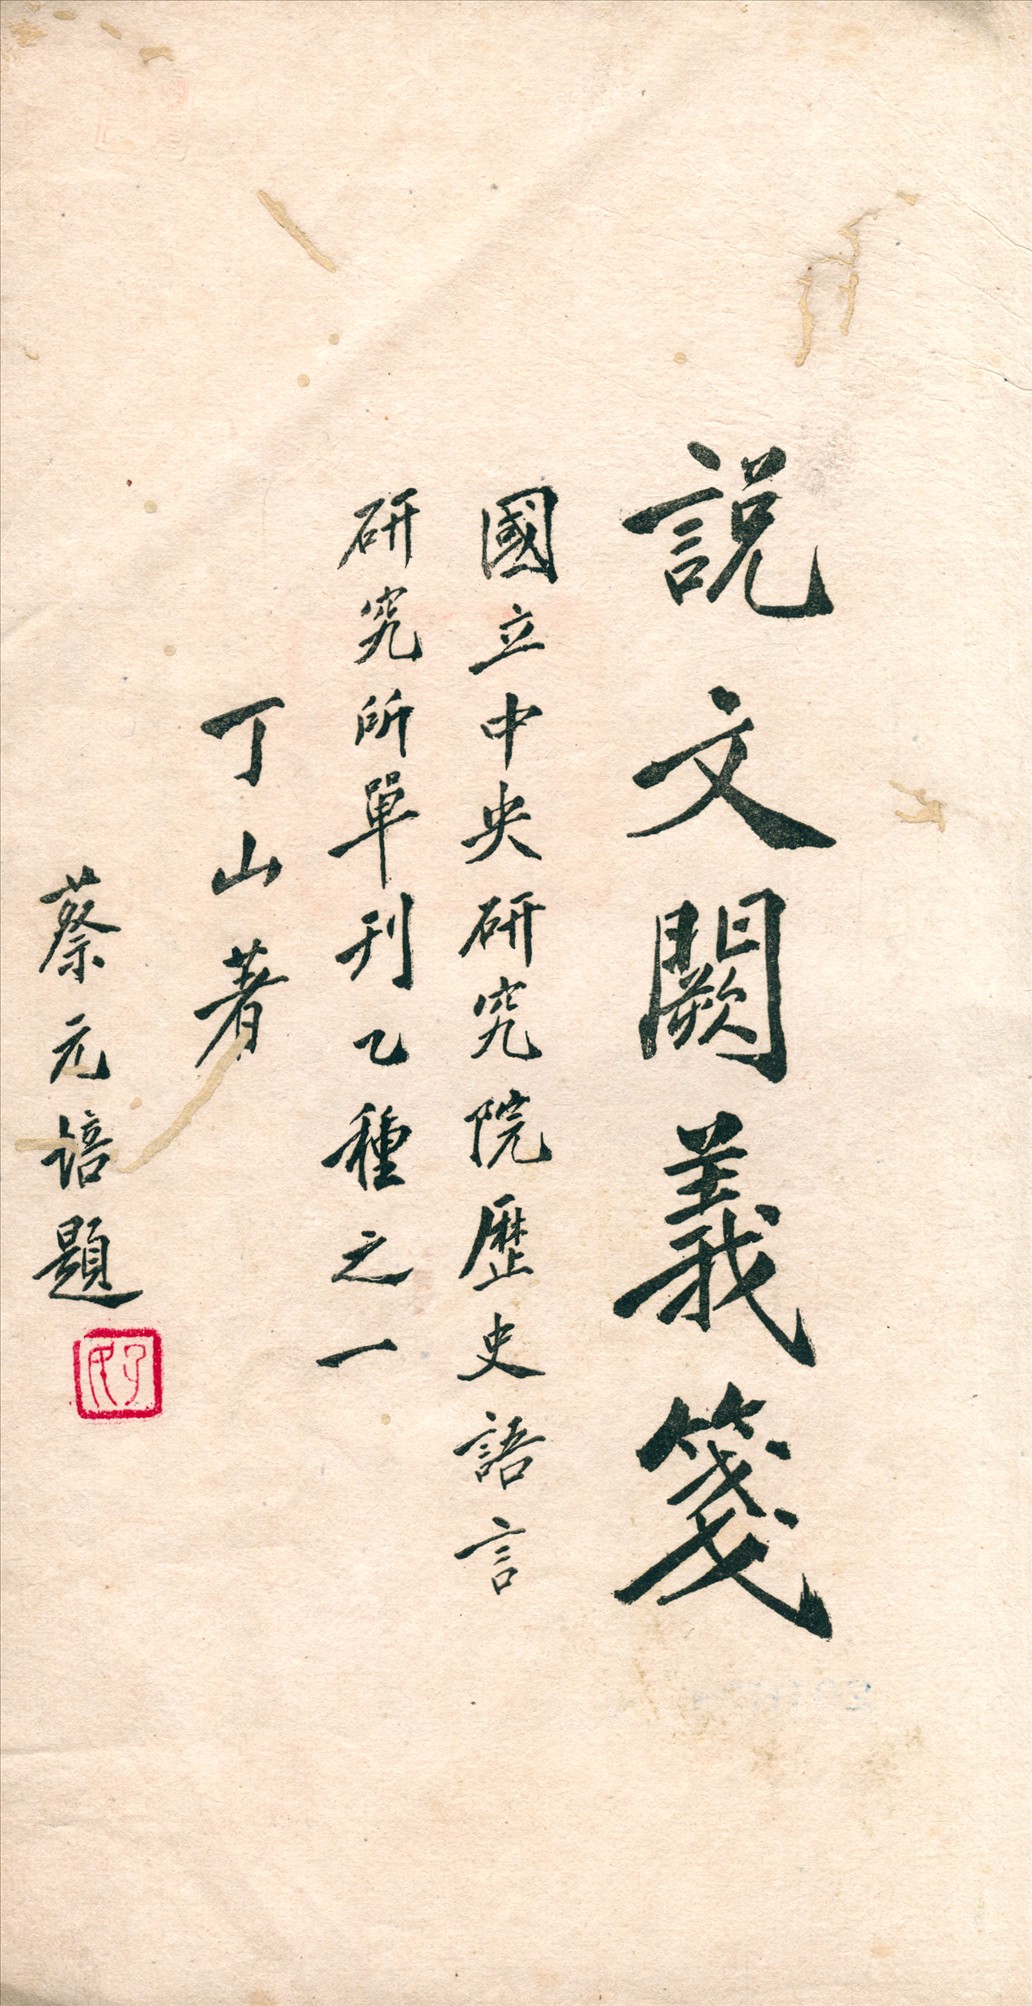 說文闕義箋
國立中央研究院歷史語言
研究所單刊乙種之一
丁山著
蔡元培題